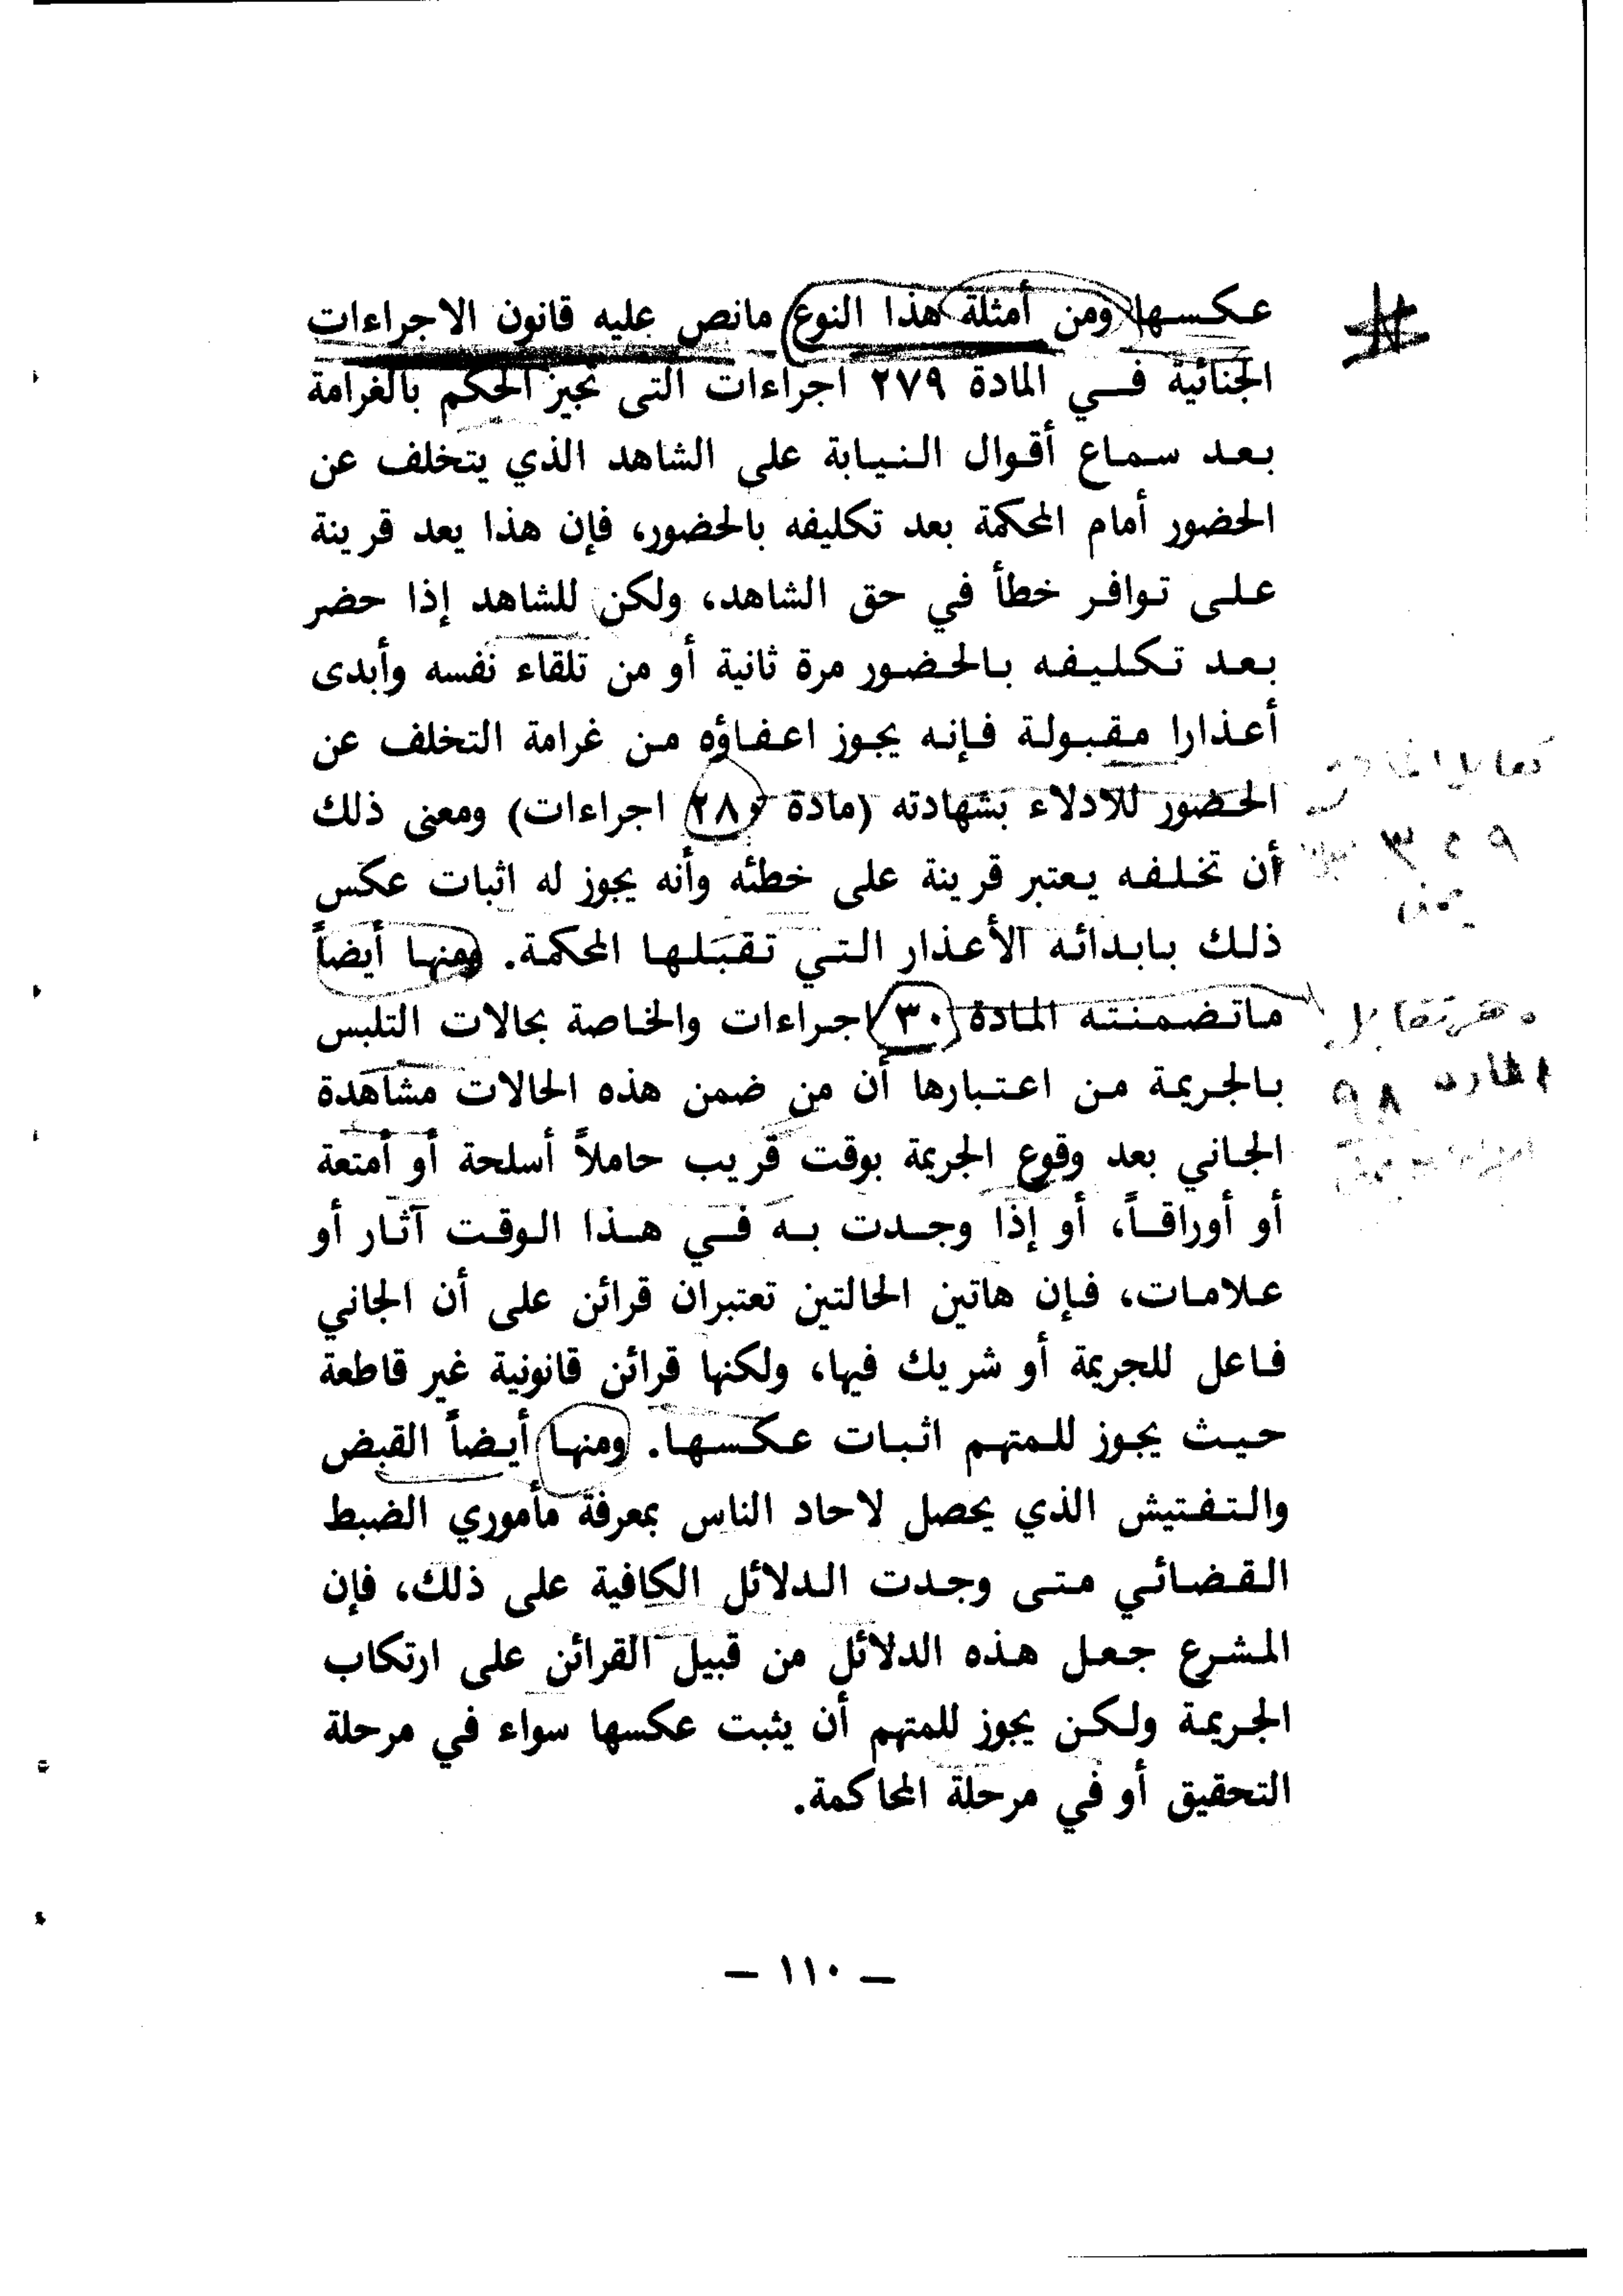 عكسها ومن أمثلة هذا النوع مانص عليه قانون الاجراءات
الجنائية في المادة ٢٧٩ اجراءات التى تجيز الحكم بالغرامة
بعد سماع أقوال النيابة على الشاهد الذي يتخلف عن
الحضور أمام المحكمة بعد تكليفه بالحضور، فإن هذا يعد قرينة
على توافر خطأ في حق الشاهد، ولكن للشاهد إذا حضر
بعد تكليفه بالحضور مرة ثانية أو من تلقاء نفسه وأبدى
أعذارا مقبولة فإنه يجوز اعفاؤه من غرامة التخلف عن
الحضور للادلاء بشهادته (مادة ٢٨٠ اجراءات) ومعنى ذلك
أن تخلفه يعتبر قرينة على خطئه وأنه يجوز له اثبات عكس
ذلك بابدائه الأعذار التي تقبلها المحكمة. ومنها أيضاً
ماتضمنته المادة ٣٠ اجراءات والخاصة بحالات التلبس
بالجريمة من اعتبارها أن من ضمن هذه الحالات مشاهدة
الجاني بعد وقوع الجريمة بوقت قريب حاملاً أسلحة أو أمتعة
أو أوراقاً، أو إذا وجدت به في هذا الوقت آثار أو
علامات، فإن هاتين الحالتين تعتبران قرائن على أن الجاني
فاعل للجريمة أو شريك فيها، ولكنها قرائن قانونية غير قاطعة
حيث يجوز للمتهم اثبات عكسها. ومنها أيضاً القبض
والتفتيش الذي يحصل لاحاد الناس بمعرفة مأموري الضبط
القضائي متى وجدت الدلائل الكافية على ذلك، فإن
المشرع جعل هذه الدلائل من قبيل القرائن على ارتكاب
الجريمة ولكن يجوز للمتهم أن يثبت عكسها سواء في مرحلة
التحقيق أو في مرحلة المحاكمة.
تقابل
٩٨
— ١١٠ —